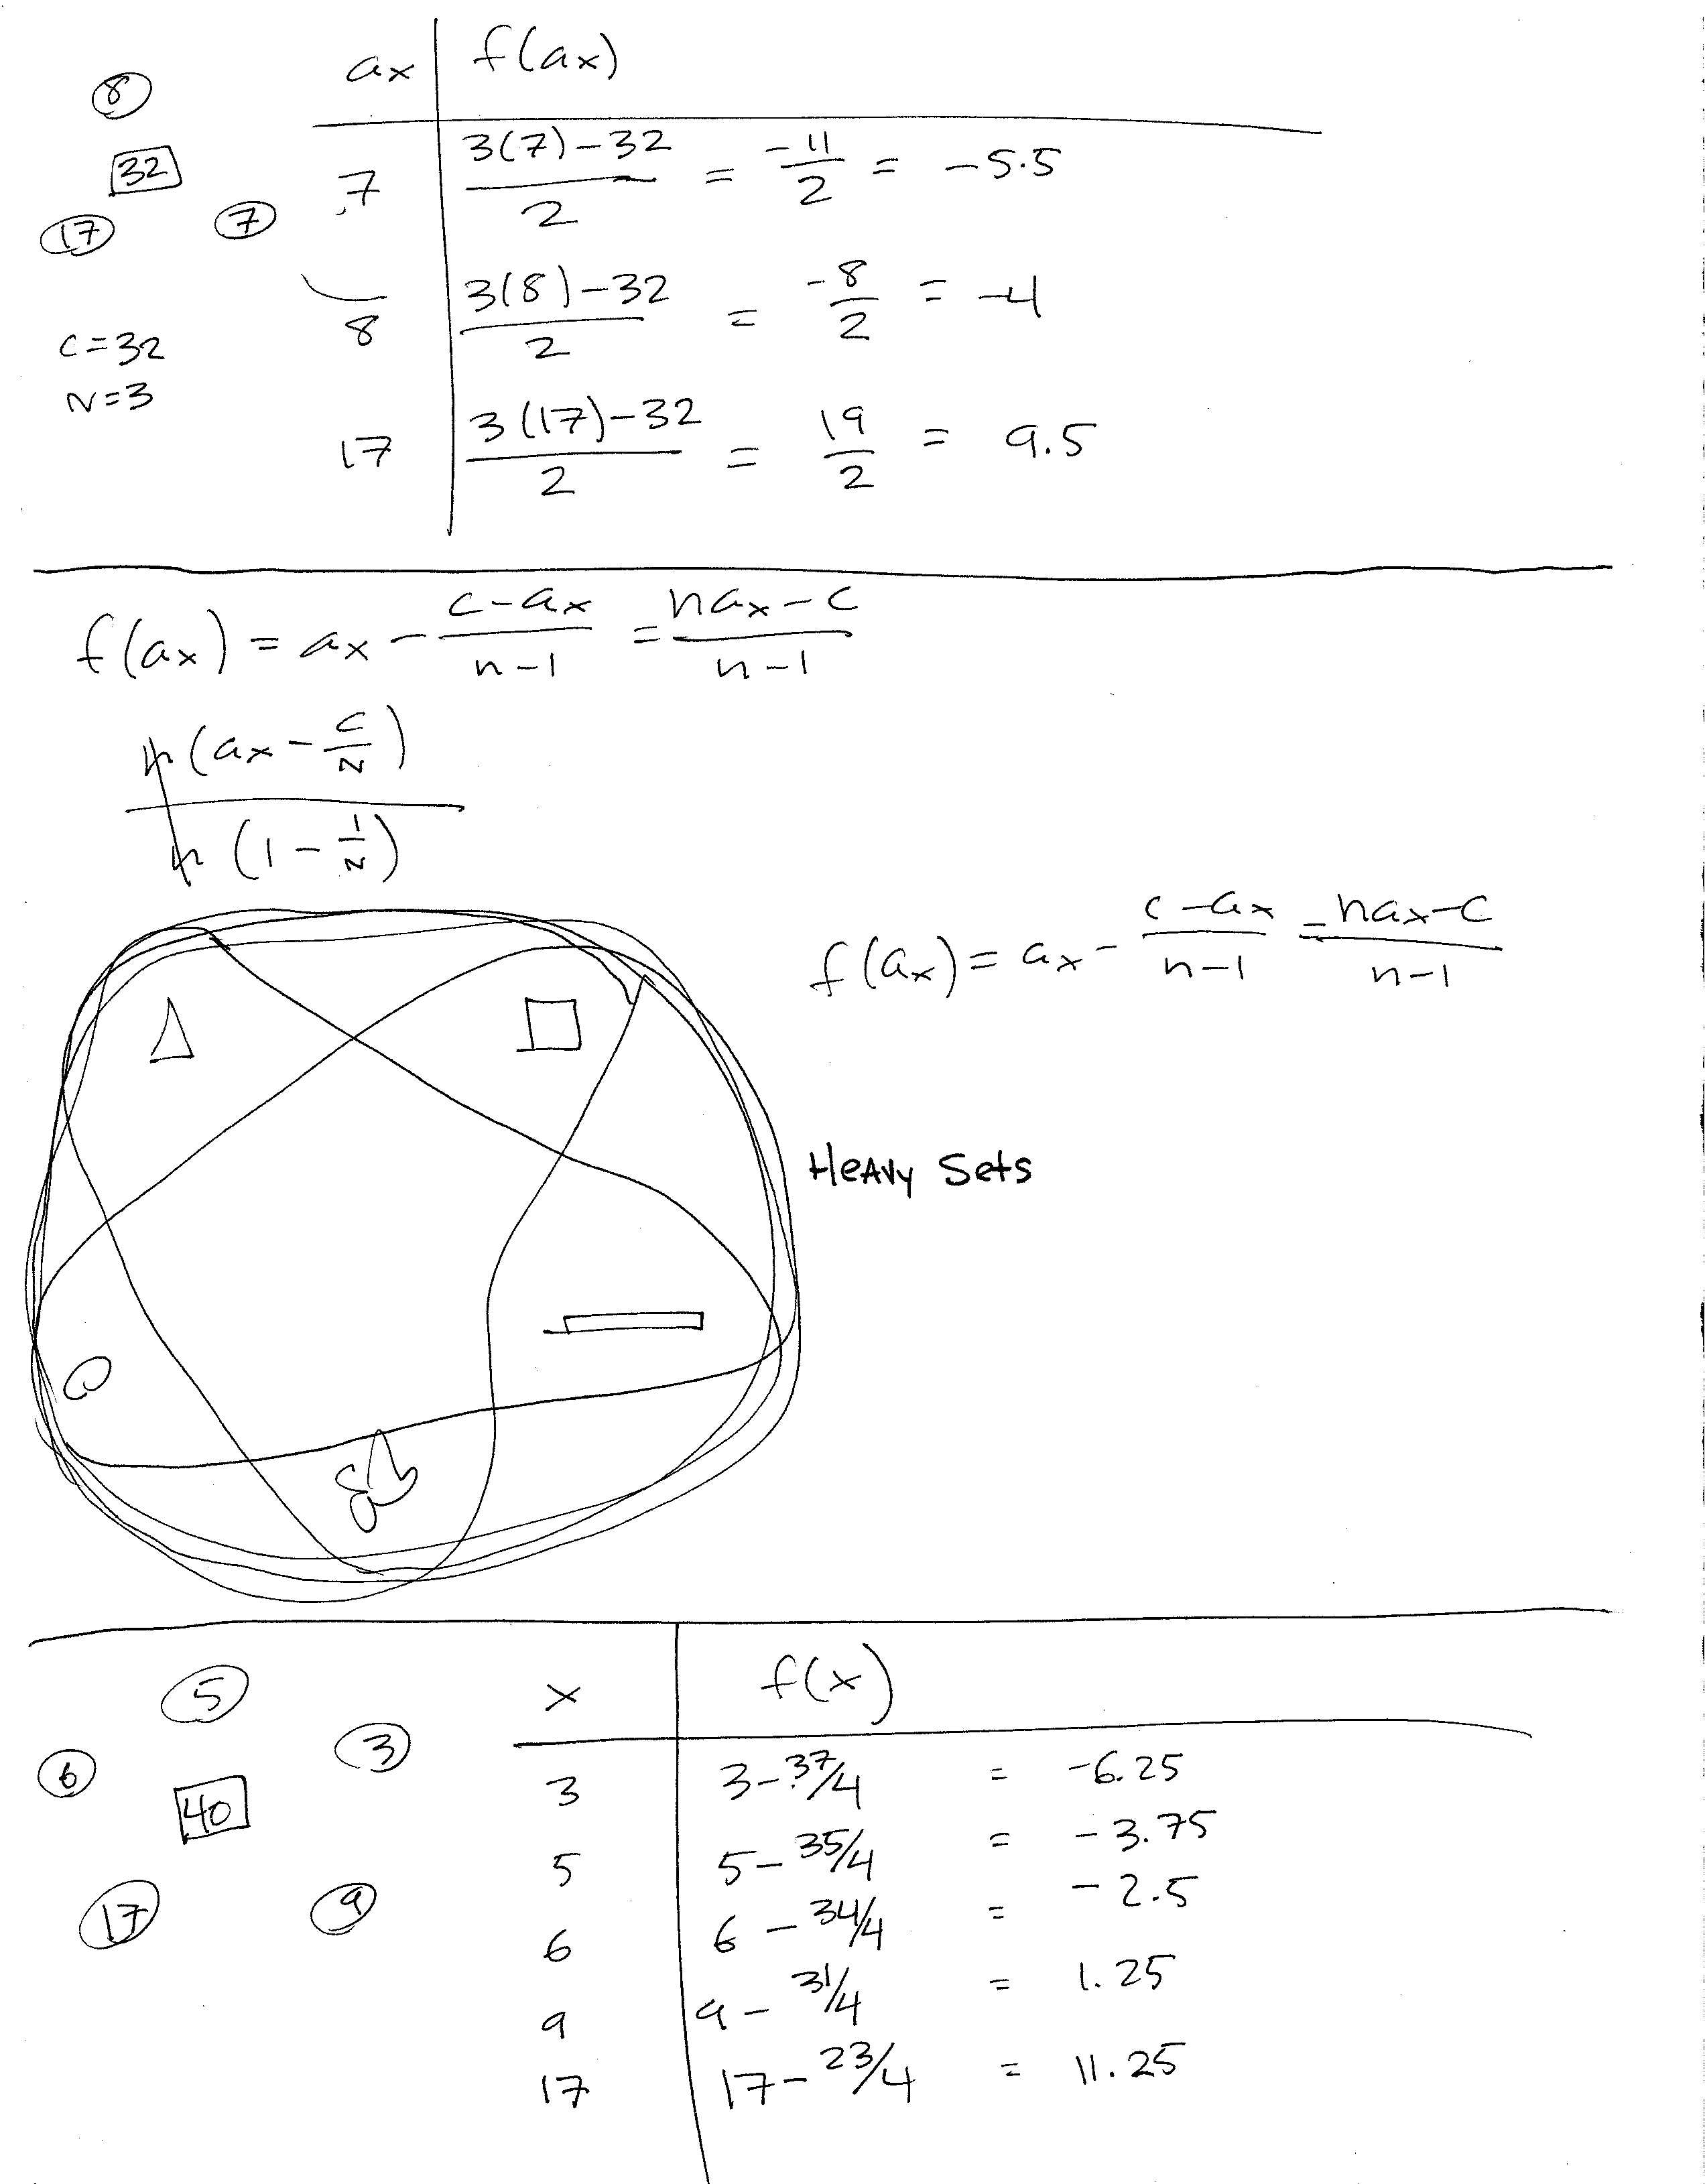 ax f(ax)
8
32
17 7
7 3(7)-32/2 = -11/2 = -5.5
8 3(8)-32/2 = -8/2 = -4
C=32
N=3
17 3(17)-32/2 = 19/2 = 9.5
f(ax) = ax - c-ax/n-1 = nax-c/n-1
n(ax - c/N)
n(1 - 1/N)
f(ax) = ax - c-ax/n-1 = nax-c/n-1
Heavy Sets
5
6 3
40
17 9
x f(x)
3 3-37/4 = -6.25
5 5-35/4 = -3.75
6 6-34/4 = -2.5
9 9-31/4 = 1.25
17 17-23/4 = 11.25